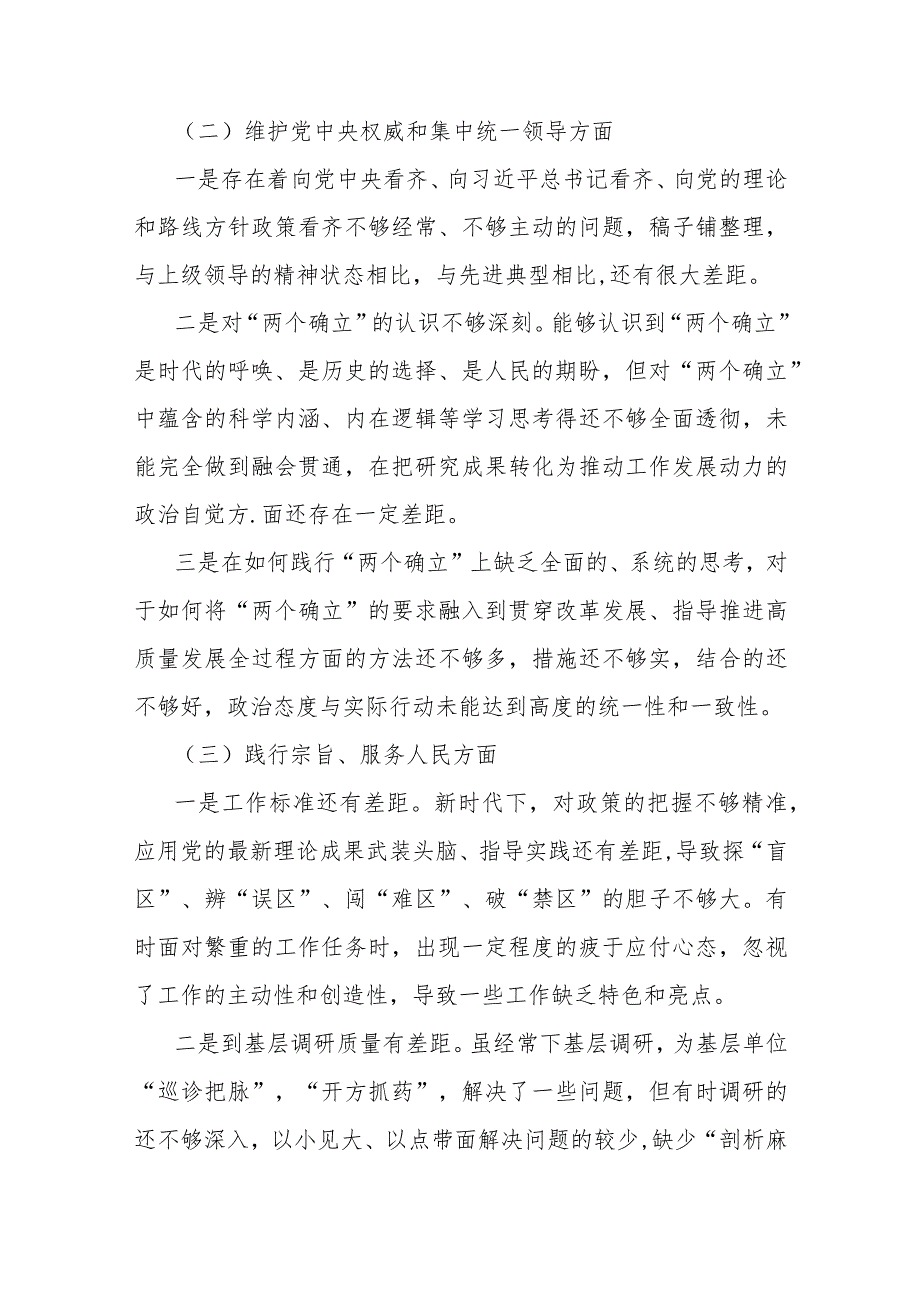 （二）维护党中央权威和集中统一领导方面
一是存在着向党中央看齐、向习近平总书记看齐、向党的理论
和路线方针政策看齐不够经常、不够主动的问题，稿子铺整理，
与上级领导的精神状态相比，与先进典型相比,还有很大差距。
二是对“两个确立”的认识不够深刻。能够认识到“两个确立”
是时代的呼唤、是历史的选择、是人民的期盼，但对“两个确立”
中蕴含的科学内涵、内在逻辑等学习思考得还不够全面透彻，未
能完全做到融会贯通，在把研究成果转化为推动工作发展动力的
政治自觉方.面还存在一定差距。
三是在如何践行“两个确立”上缺乏全面的、系统的思考，对
于如何将“两个确立”的要求融入到贯穿改革发展、指导推进高
质量发展全过程方面的方法还不够多，措施还不够实，结合的还
不够好，政治态度与实际行动未能达到高度的统一性和一致性。
（三）践行宗旨、服务人民方面
一是工作标准还有差距。新时代下，对政策的把握不够精准，
应用党的最新理论成果武装头脑、指导实践还有差距,导致探“盲
区”、辨“误区”、闯“难区”、破“禁区”的胆子不够大。有
时面对繁重的工作任务时，出现一定程度的疲于应付心态，忽视
了工作的主动性和创造性，导致一些工作缺乏特色和亮点。
二是到基层调研质量有差距。虽经常下基层调研，为基层单位
“巡诊把脉”，“开方抓药”，解决了一些问题，但有时调研的
还不够深入，以小见大、以点带面解决问题的较少,缺少“剖析麻